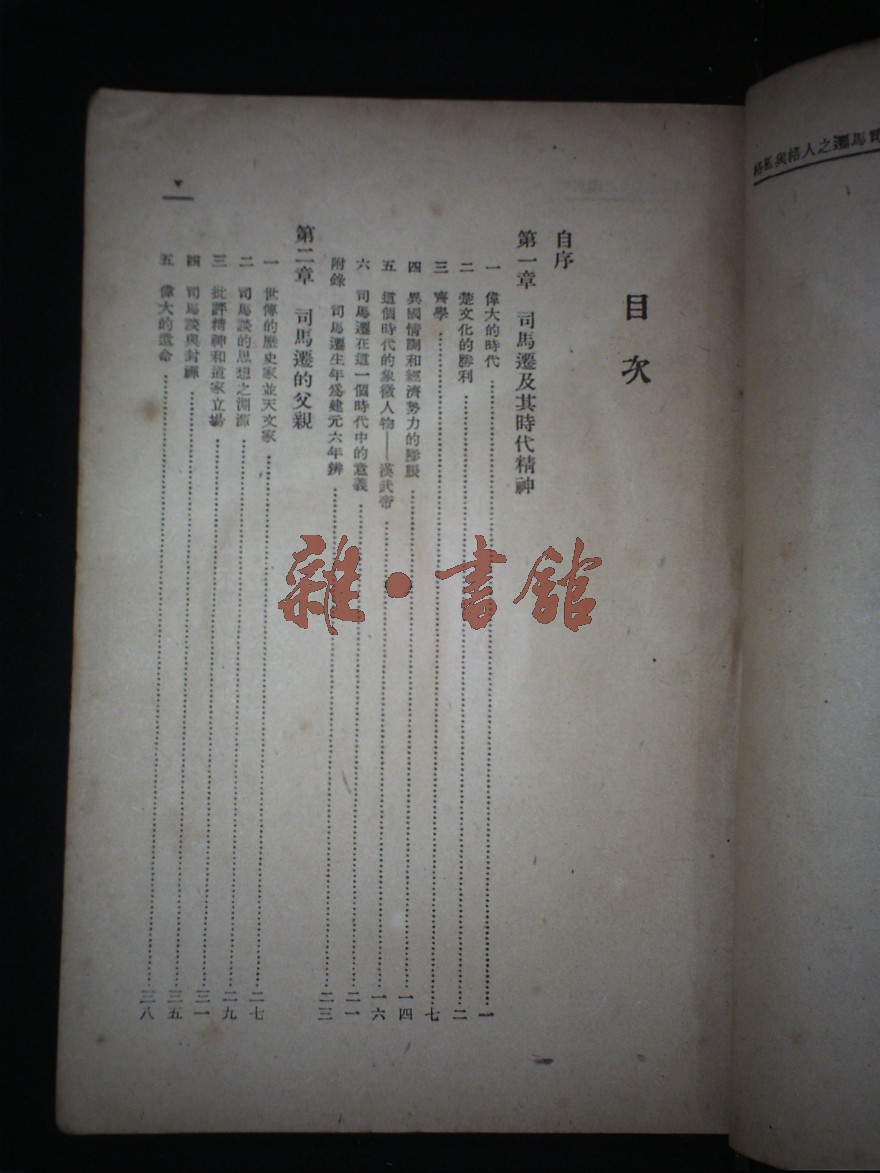 司馬遷之人格與風格
目次
自序
第一章 司馬遷及其時代精神
一 偉大的時代……一
二 楚文化的勝利……二
三 齊學……七
四 異國情調和經濟勢力的膨脹……一四
五 這個時代的象徵人物——漢武帝……一六
六 司馬遷在這一個時代中的意義……二一
附錄 司馬遷生年爲建元六年辨……二三
第二章 司馬遷的父親
一 世傳的歷史家並天文家……二七
二 司馬談的思想之淵源……二九
三 批評精神和道家立場……三一
四 司馬談與封禪……三五
五 偉大的遺命……三八
雜·書館